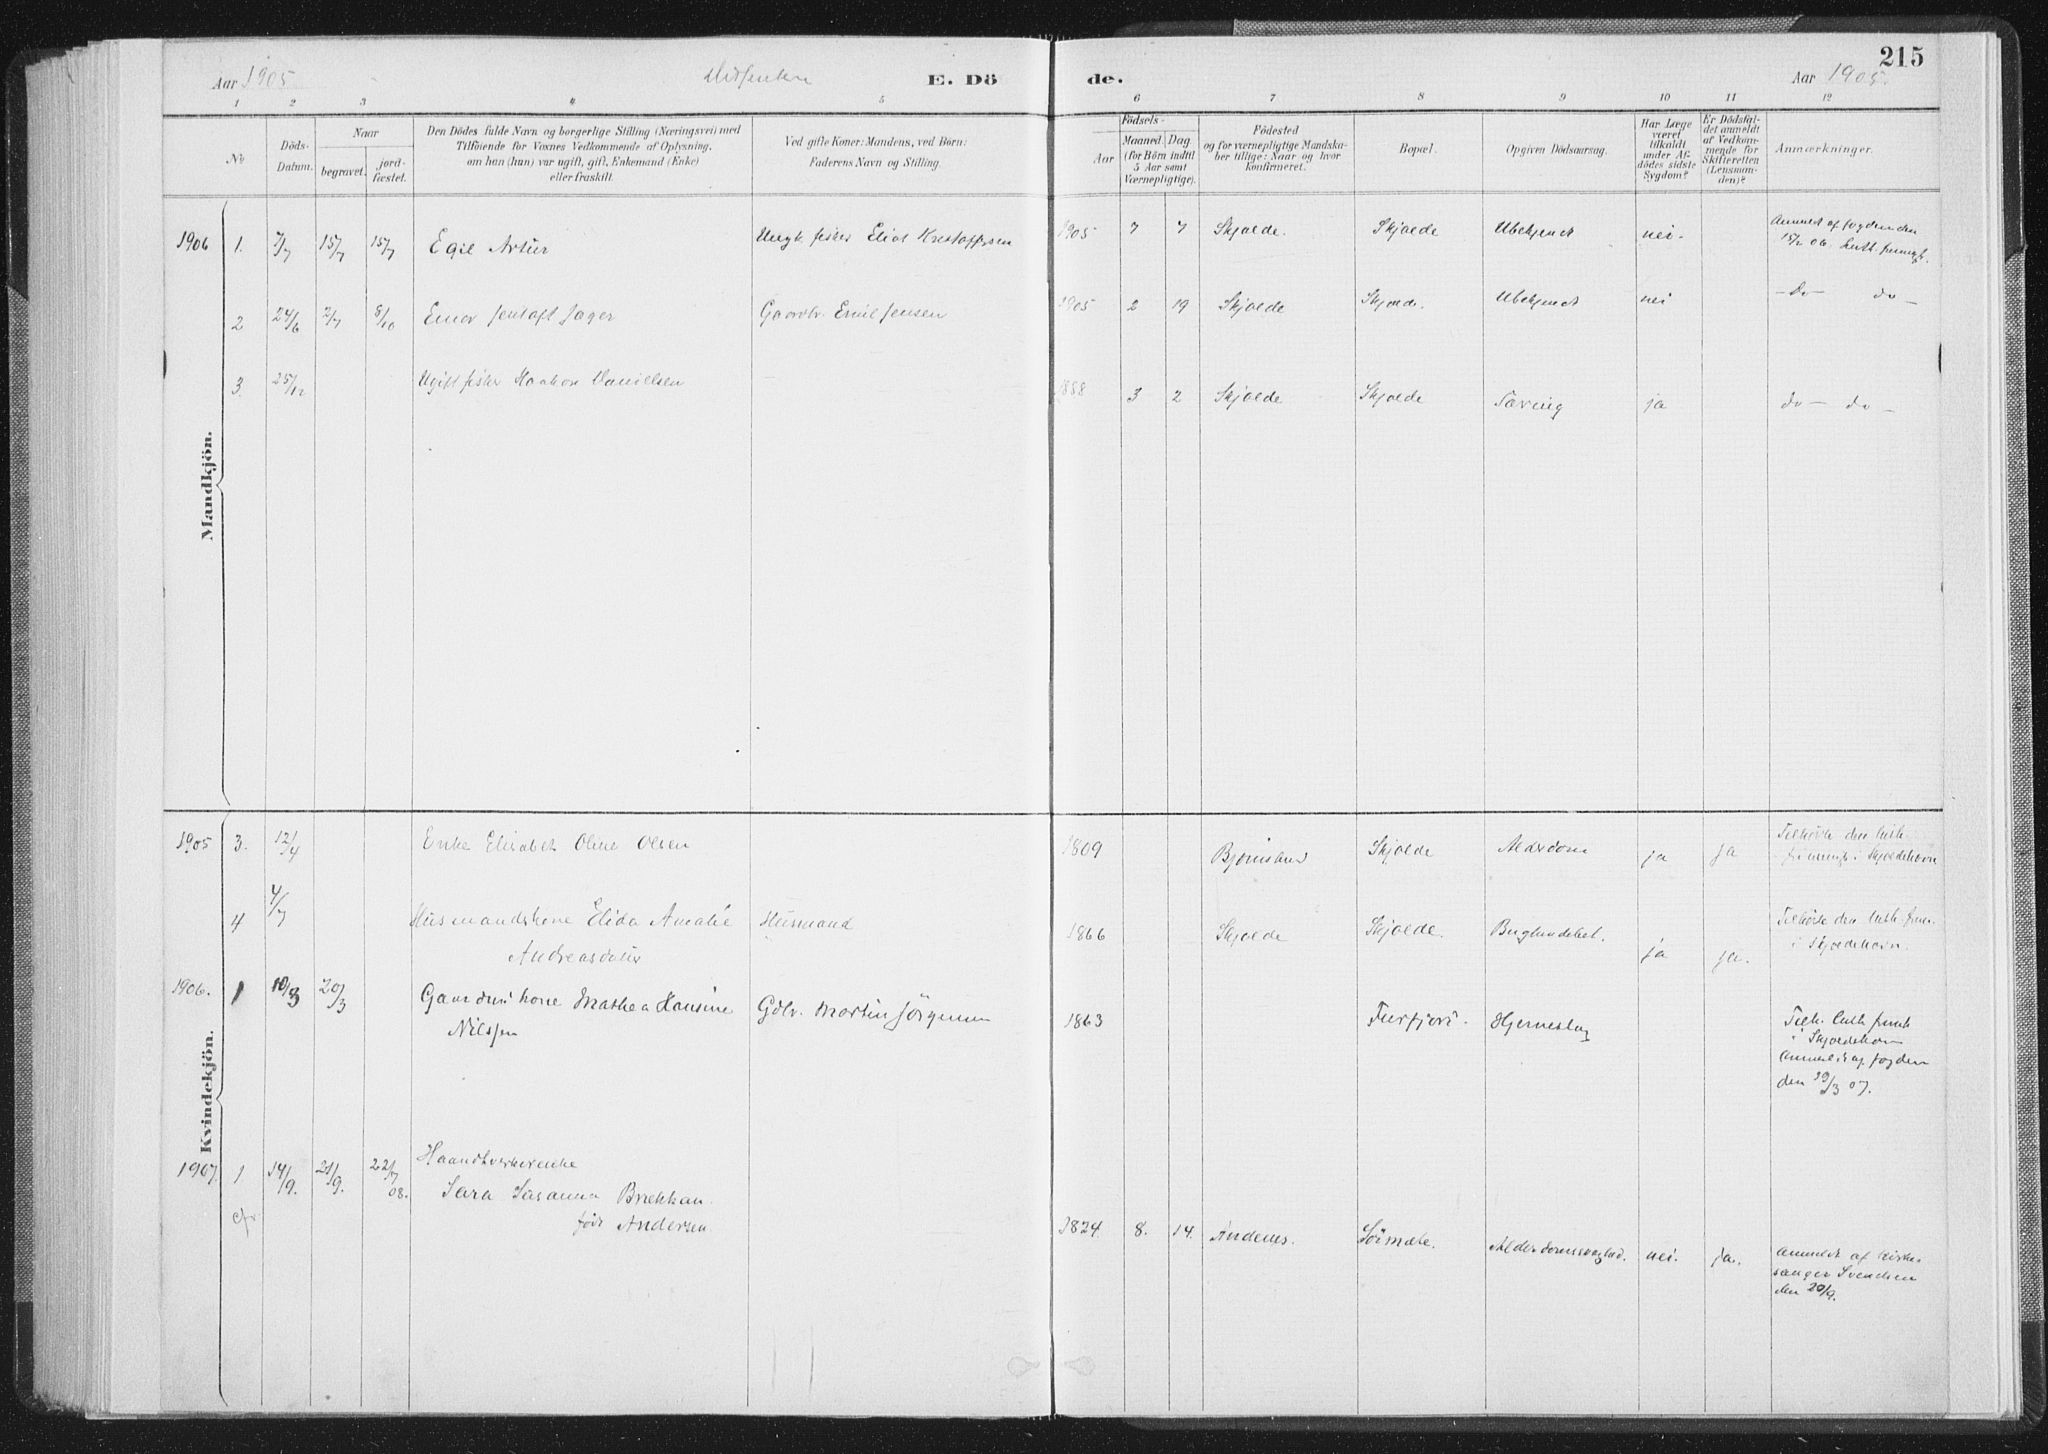 Aar 1905. E. Dö de. Aar 1905. 215
1 2 3 4 5 6 7 8 9 10 11 12
No
Döds-Datum.
Naar
begravet.
jord-fæstet.
Den Dödes fulde Navn og borgerlige Stilling (Næringsvei) med
Tilföiende for Voxnes Vedkommende af Oplysning,
om han (hun) var ugift, gift, Enkemand (Enke)
eller fraskilt.
Ved gifte Koner: Mandens, ved Börn:
Faderens Navn og Stilling.
Födsels-
Aar
Maaned. Dag.
(for Börn indtil
5 Aar samt
Værnepligtige).
Födested
og for værnepligtige Mandska-
ber tillige: Naar og hvor
konfirmeret.
Bopæl.
Opgiven Dödsaarsag.
Har Læge
været
tilkaldt
under Af-
dödes sidste
Sygdom?
Er Dödsfal-
det anmeldt
af Vedkom-
mende for
Skifteretten
(Lensman-
den)?
Anmærkninger.
Mandkjön.
1906 1. 7/7 15/7 15/7 Egil Artur Ungk fisker Eliot Kristoffersen 1905 7 7 Skjolde. Skjolde Ubekjendt nei. Anmeldt af fogden den
15/2 06. Luth. frimgh.
2 24/6 2/7 8/10 Einar Jentoft Jager Gaardbr. Emil Jensen 1905 2 19 Skjolde Skjolde. Ubekjendt nei - do - do -
3. 25/12 Ugift fisker Haakon Danielsen 1888 3 2 Skjolde Skjolde Tæring ja do - do -
Kvindekjön.
1905 3. 12/4 Enke Elisabet Oline Olsen 1809 Skjolde Alderdom ja ja Tilhørte den luth.
frimngh i Skjoldehavn
4 4/7 Husmandskone Elida Amalie Husmand 1866 Skjolde Skjolde. ja ja. Tilhørte den luth. frim.
Andreasdatter i Skjoldehavn.
1906. 1 10/3 20/3 Gaardmkone Mathea Hansine Gdbr. Martin Jörgensen 1863 Hjerneslag Tilh. luth frimh
Nilssen i Skjoldehavn
Anmeldt af fogden
den 19/3 07.
1907. 1 14/9. 21/9. 22/7 08. Haandverkerenke
Sara Susanna Brekkan
födt Andersen 1824 8. 14. Andenes. Alderdomssvaghed. nei. ja. Anmeldt af kirke-
sanger Svendsen
den 20/9.